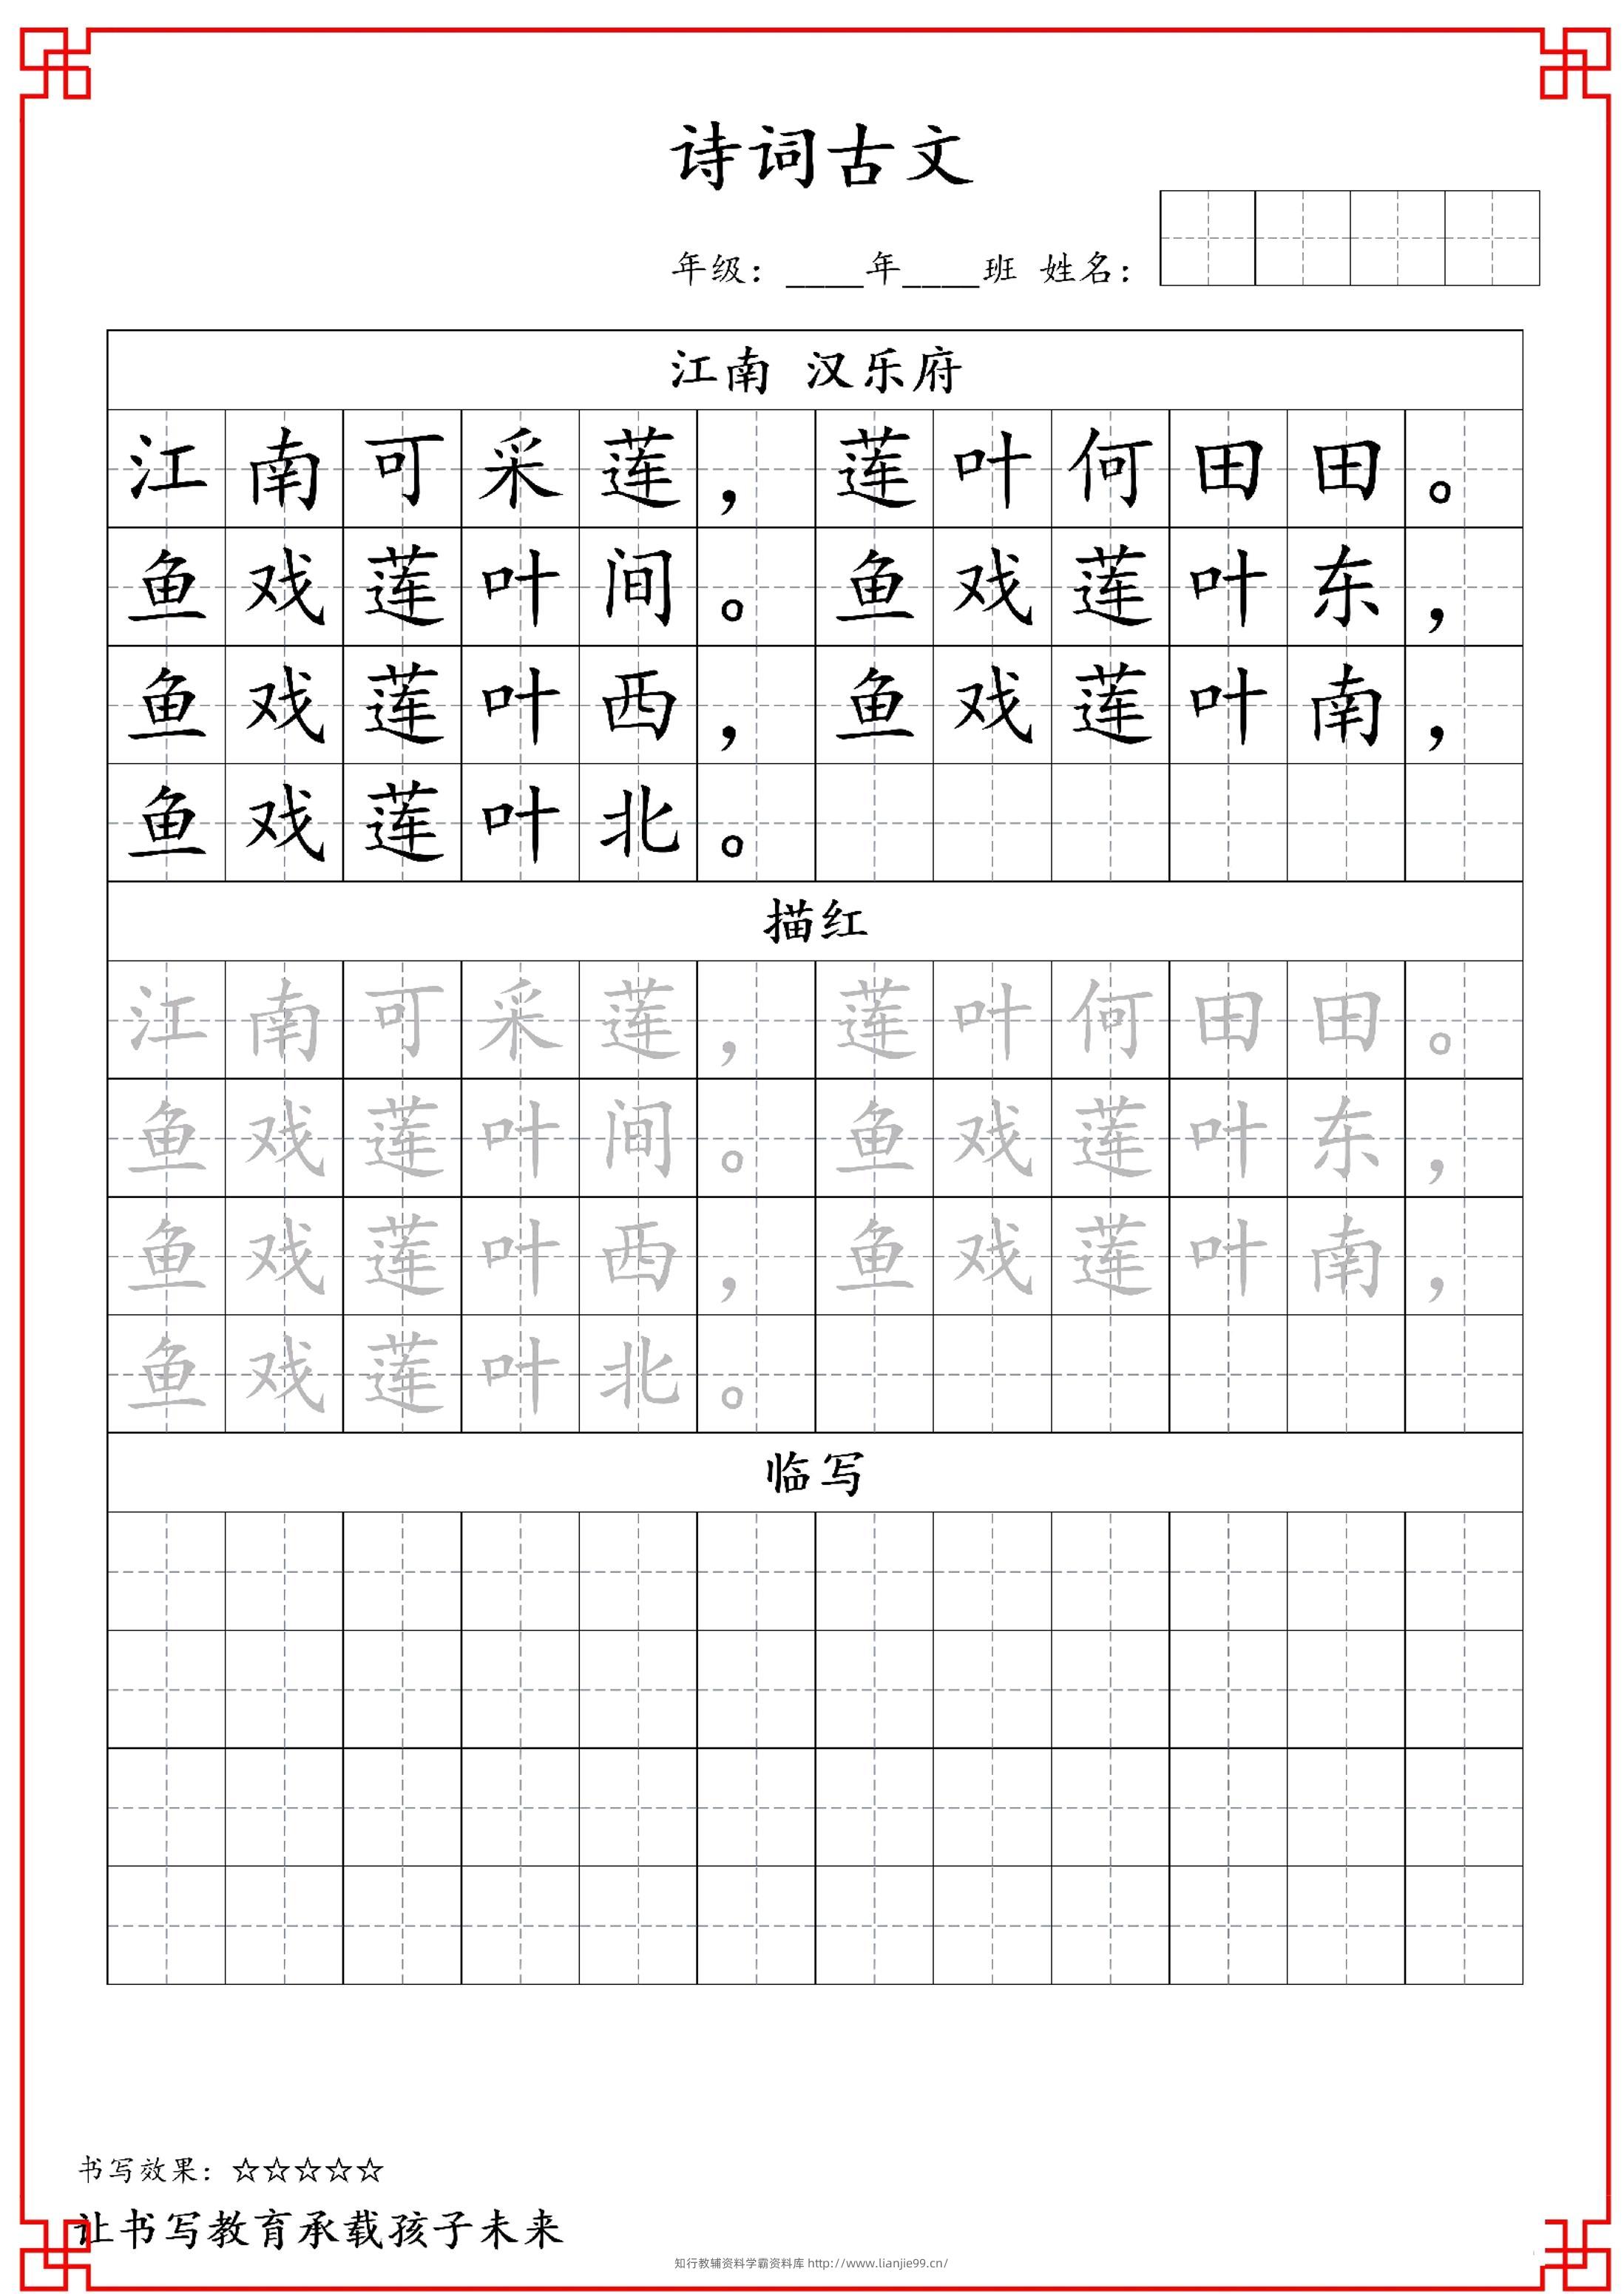 诗词古文
年级：____年____班 姓名：
江南 汉乐府
江南可采莲，莲叶何田田。
鱼戏莲叶间。鱼戏莲叶东，
鱼戏莲叶西，鱼戏莲叶南，
鱼戏莲叶北。
描红
江南可采莲，莲叶何田田。
鱼戏莲叶间。鱼戏莲叶东，
鱼戏莲叶西，鱼戏莲叶南，
鱼戏莲叶北。
临写
书写效果：☆☆☆☆☆
让书写教育承载孩子未来
知行教辅资料学霸资料库 http://www.lianjie99.cn/